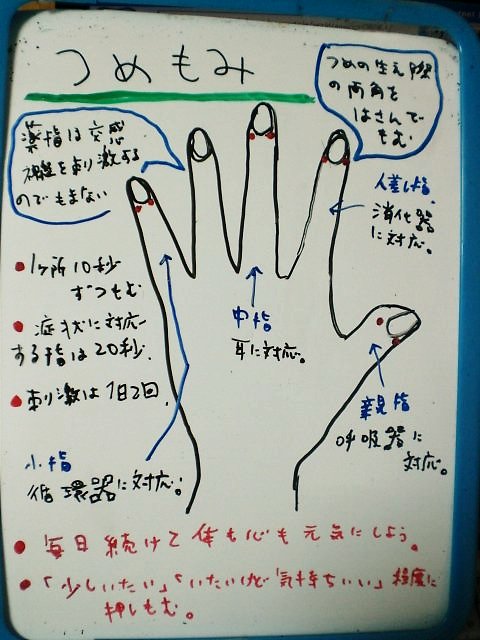 つめもみ
つめの生え際
の両角を
はさんで
もむ
薬指は交感
神経を刺激する
のでもまない
人差し指
消化器
に対応。
●1ヶ所10秒
ずつもむ
●症状に対応
する指は20秒.
●刺激は1日2回.
中指
耳に対応。
親指
呼吸器に
対応。
小指
循環器に対応。
●毎日続けて体も心も元気にしよう。
●「少しいたい」「いたいけど気持ちいい」程度に
押しもむ。